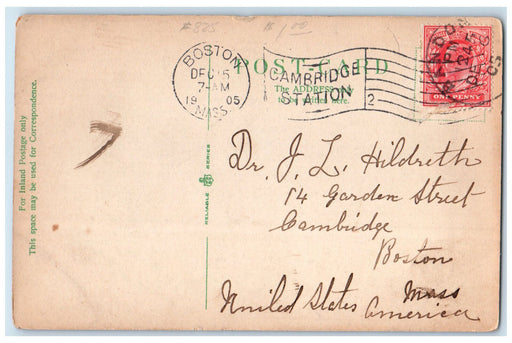 #825
#1.00
BOSTON
DEC 15
7-AM
1905
MASS
CAMBRIDGE
STATION
2
POST-CARD
The ADDRESS only
to be written here.
ONE PENNY
For Inland Postage only
This space may be used for Correspondence.
RELIABLE
SERIES
Dr. J. L. Hildreth
14 Garden Street
Cambridge
Boston
Mass
United States America